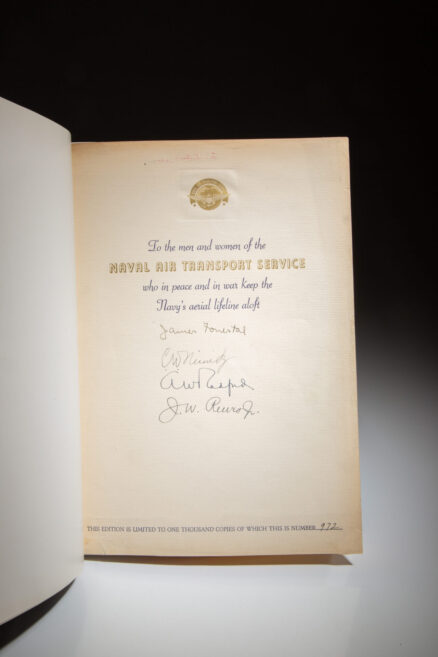 To the men and women of the
NAVAL AIR TRANSPORT SERVICE
who in peace and in war keep the
Navy's aerial lifeline aloft
James Forrestal
CW Nimitz
AW Radford
J. W. Reeves Jr.
THIS EDITION IS LIMITED TO ONE THOUSAND COPIES OF WHICH THIS IS NUMBER 972